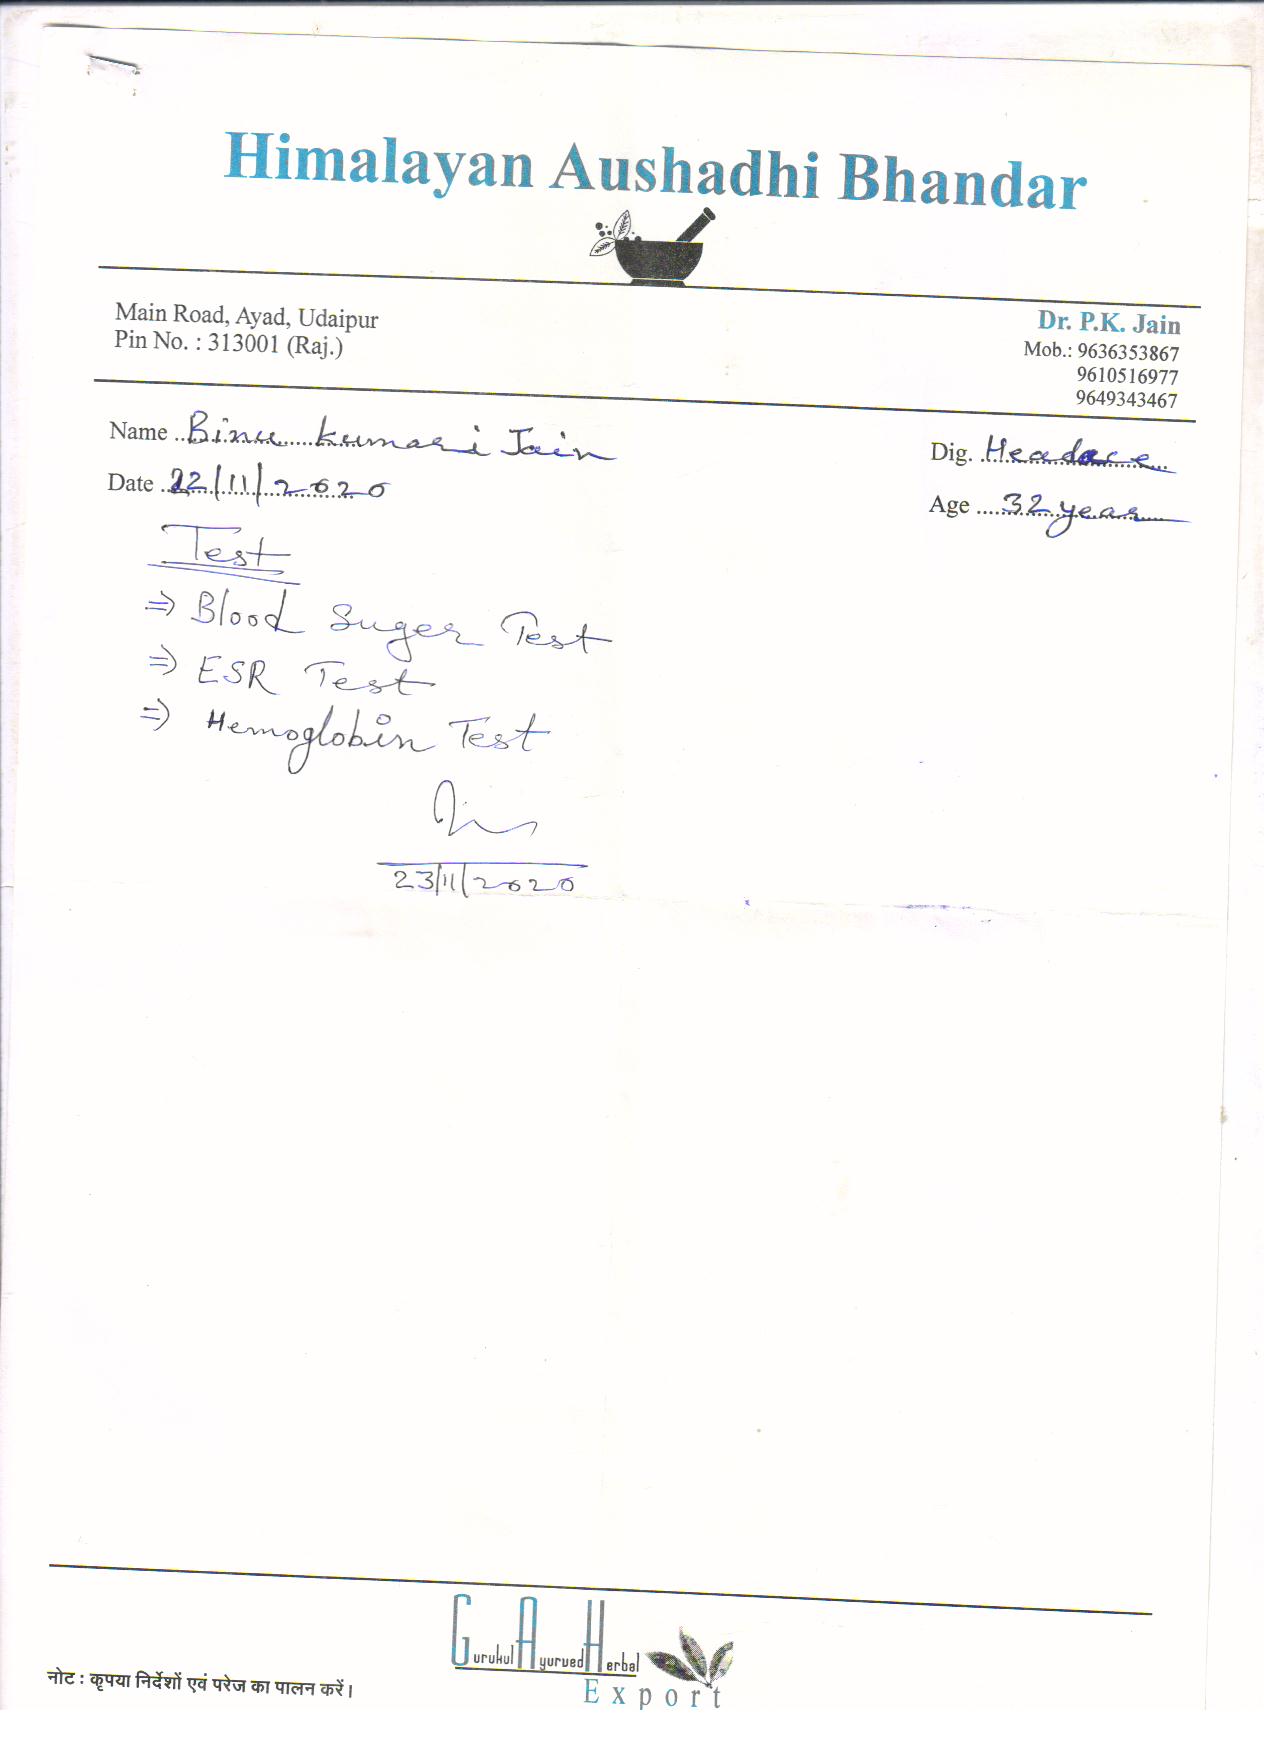 Himalayan Aushadhi Bhandar
Main Road, Ayad, Udaipur
Pin No. : 313001 (Raj.)
Dr. P.K. Jain
Mob.: 9636353867
9610516977
9649343467
Name Binu kumari Jain
Dig. Headace
Date 22/11/2020
Age 32 year
Test
⇒ Blood Suger Test
⇒ ESR Test
⇒ Hemoglobin Test
23/11/2020
Gurukul Ayurved Herbal
Export
नोट : कृपया निर्देशों एवं परेज का पालन करें।